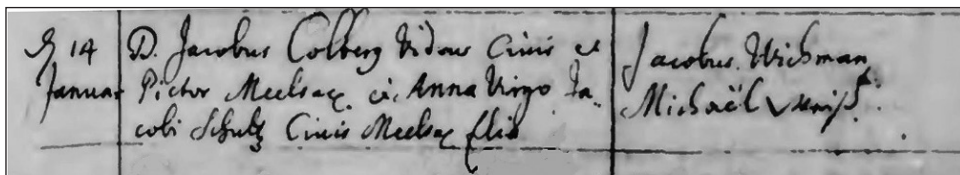 14 D. Jacobus Colberg Viduus Civis et
Januar Pictor Meelsac. et Anna Virgo Ja-
cobi Schultz Civis Meelsac filia
Jacobus Wichman
Michaël